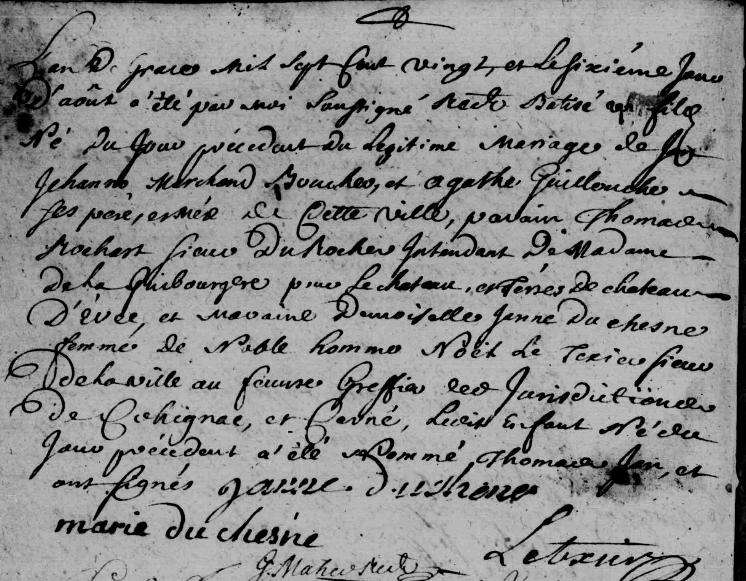 L'an De grace Mil Sept Cent vingt, et Le sixiéme Jour
D'août a été par Moi Soussigné Rectr Batisé un fils
Né du Jour précedent du Legitime Mariage de Jn
Jehanno Marchand Boucher, et agathe Guillouche
ses pere, et mére de Cette ville, parain Thomas
Rochart sieur Du Rocher Intendant De Madame
de la Guibourgere pour Le chateau, et Térres de chateau
D'évée, et Maraine Demoiselle Janne du chesne
femme de Noble homme Noël Le Texier sieur
De la ville au feuvre Greffier des Jurisdictions
de Cohignac, et Cerné, Ledit Enfant Né du
Jour précedent a été Nommé Thomas Jan, et
ont signés Janne duchene
marie du chesne
Letexier
G. Mahe Rectr